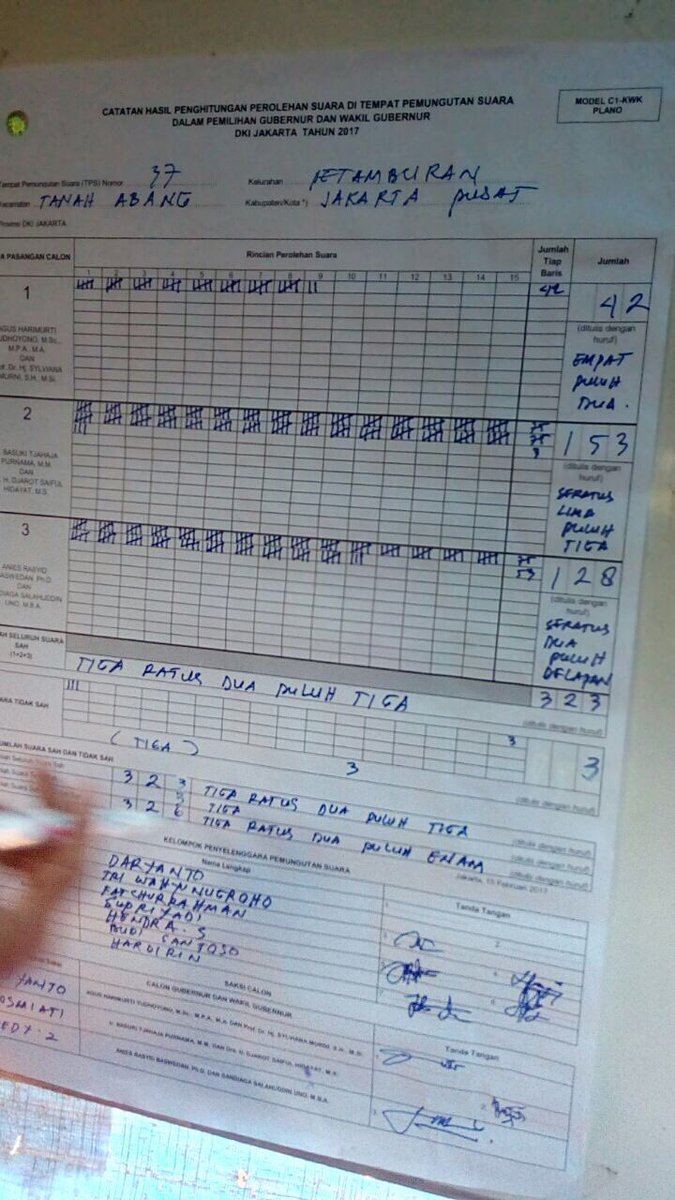 CATATAN HASIL PENGHITUNGAN PEROLEHAN SUARA DI TEMPAT PEMUNGUTAN SUARA
DALAM PEMILIHAN GUBERNUR DAN WAKIL GUBERNUR
DKI JAKARTA TAHUN 2017
MODEL C1-KWK
PLANO
Tempat Pemungutan Suara (TPS) Nomor 37 Kelurahan PETAMBURAN
Kecamatan TANAH ABANG Kabupaten/Kota *) JAKARTA PUSAT
Provinsi DKI JAKARTA
A PASANGAN CALON Rincian Perolehan Suara Jumlah Tiap Baris Jumlah
1 2 3 4 5 6 7 8 9 10 11 12 13 14 15
1 42 42
AGUS HARIMURTI
YUDHOYONO, M.Sc.,
M.P.A., M.A.
DAN
Prof. Dr. Hj. SYLVIANA
MURNI, S.H., M.Si.
(ditulis dengan huruf)
EMPAT
PULUH
DUA.
2 75 75 3 153
BASUKI TJAHAJA
PURNAMA, M.M.
DAN
H. DJAROT SAIFUL
HIDAYAT, M.S.
(ditulis dengan huruf)
SERATUS
LIMA
PULUH
TIGA
3 75 53 128
ANIES RASYID
BASWEDAN, Ph.D.
DAN
SANDIAGA SALAHUDDIN
UNO, M.B.A.
(ditulis dengan huruf)
SERATUS
DUA
PULUH
DELAPAN
AH SELURUH SUARA
SAH
(1+2+3)
TIGA RATUS DUA PULUH TIGA 323
(ditulis dengan huruf)
ARA TIDAK SAH 3 3
(TIGA) 3
(ditulis dengan huruf)
JUMLAH SUARA SAH DAN TIDAK SAH
323 TIGA RATUS DUA PULUH TIGA (ditulis dengan huruf)
3 TIGA (ditulis dengan huruf)
326 TIGA RATUS DUA PULUH ENAM (ditulis dengan huruf)
Jakarta, 15 Februari 2017
KELOMPOK PENYELENGGARA PEMUNGUTAN SUARA
Nama Lengkap Tanda Tangan
DARYANTO
TRI WAHYU NUGROHO
FATCHURRAHMAN
SUPRIYADI
HENDRA. S
BUDI SANTOSO
HARDIRIN
SAKSI CALON
CALON GUBERNUR DAN WAKIL GUBERNUR Tanda Tangan
AGUS HARIMURTI YUDHOYONO, M.Sc., M.P.A., M.A. DAN Prof. Dr. Hj. SYLVIANA MURNI, S.H., M.Si.
Ir. BASUKI TJAHAJA PURNAMA, M.M. DAN Drs. H. DJAROT SAIFUL HIDAYAT, M.S.
ANIES RASYID BASWEDAN, Ph.D. DAN SANDIAGA SALAHUDDIN UNO, M.B.A.